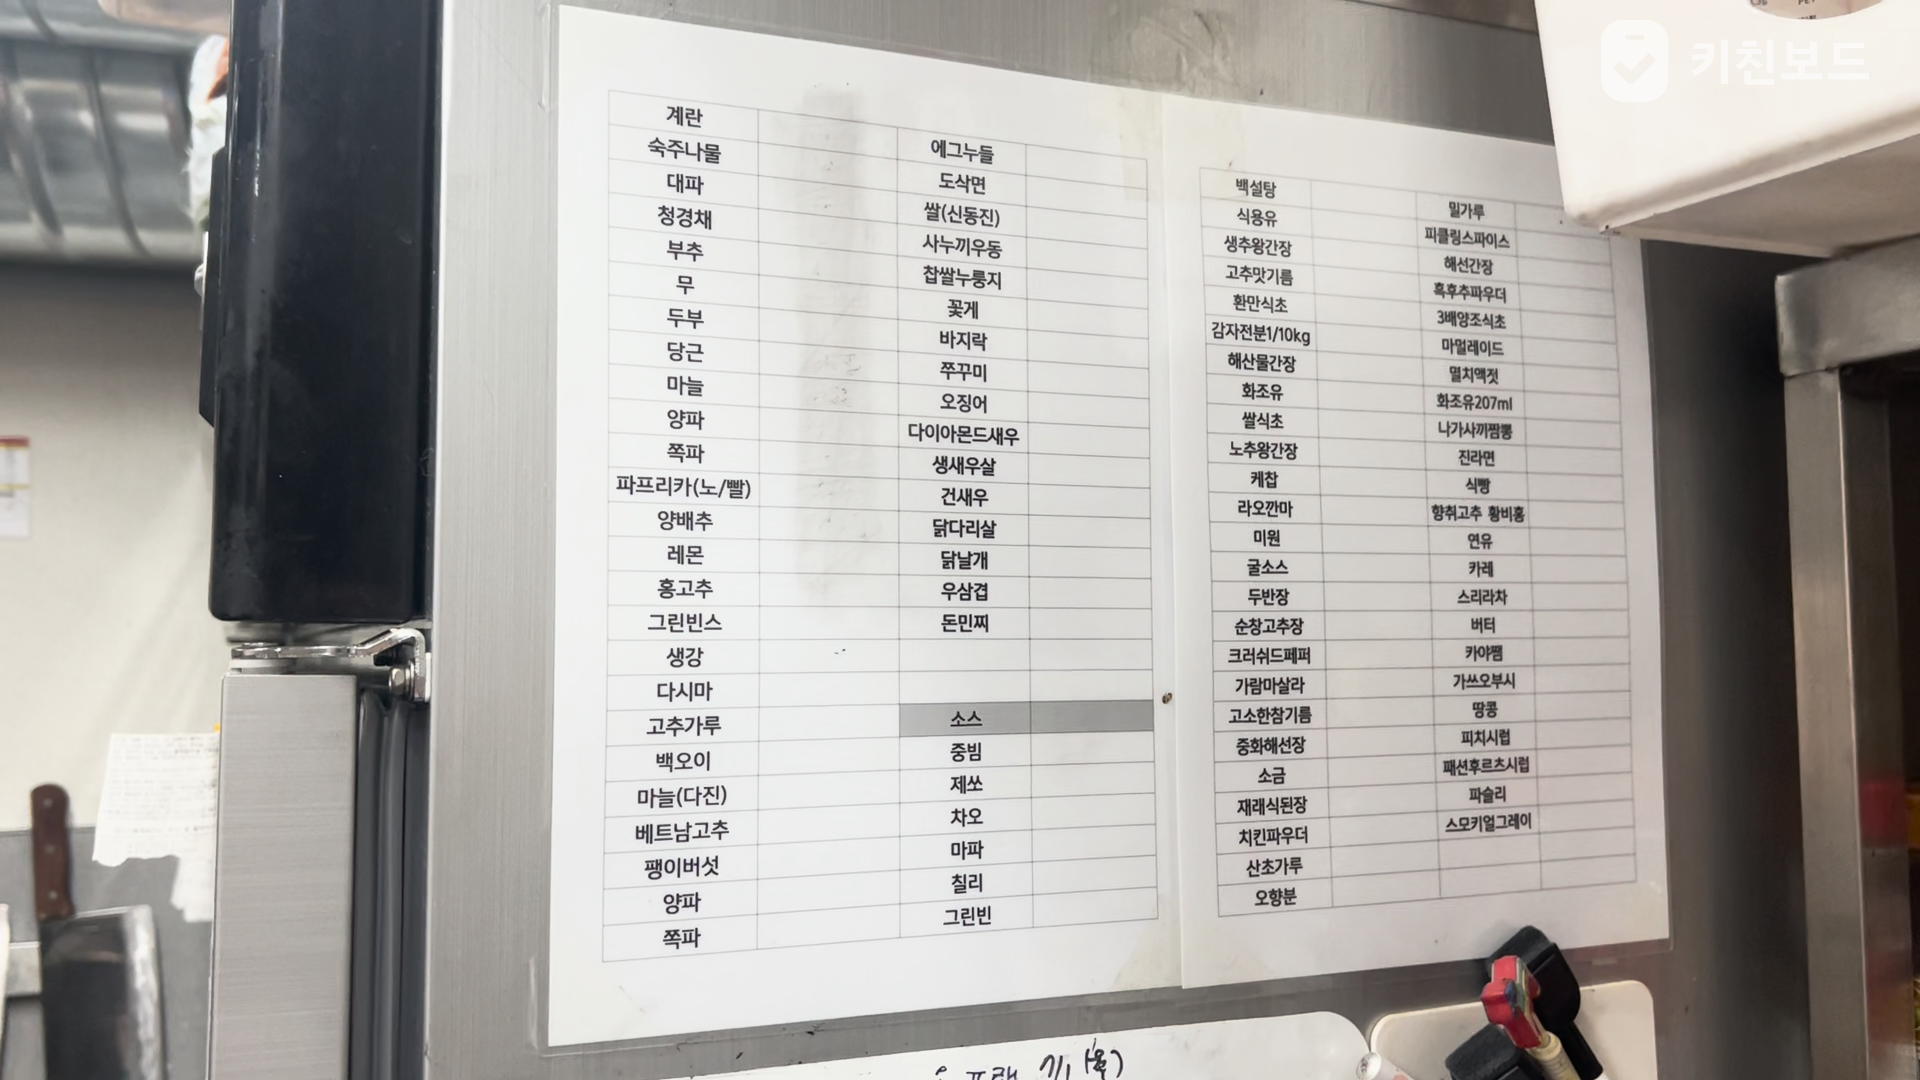 키친보드
계란
숙주나물
대파
청경채
부추
무
두부
당근
마늘
양파
쪽파
파프리카(노/빨)
양배추
레몬
홍고추
그린빈스
생강
다시마
고추가루
백오이
마늘(다진)
베트남고추
팽이버섯
양파
쪽파
에그누들
도삭면
쌀(신동진)
사누끼우동
찹쌀누룽지
꽃게
바지락
쭈꾸미
오징어
다이아몬드새우
생새우살
건새우
닭다리살
닭날개
우삼겹
돈민찌
소스
중빔
제쏘
차오
마파
칠리
그린빈
백설탕
식용유
생추왕간장
고추맛기름
환만식초
감자전분1/10kg
해산물간장
화조유
쌀식초
노추왕간장
케찹
라오깐마
미원
굴소스
두반장
순창고추장
크러쉬드페퍼
가람마살라
고소한참기름
중화해선장
소금
재래식된장
치킨파우더
산초가루
오향분
밀가루
피클링스파이스
해선간장
흑후추파우더
3배양조식초
마멀레이드
멸치액젓
화조유207ml
나가사끼짬뽕
진라면
식빵
향취고추 황비홍
연유
카레
스리라차
버터
카야쨈
가쓰오부시
땅콩
피치시럽
패션후르츠시럽
파슬리
스모키얼그레이
7/1 (목)